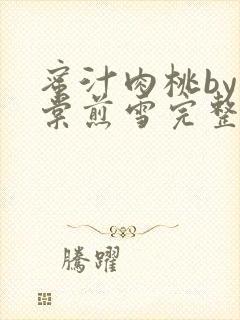 蜜汁肉桃by
棠煎雪完整
騰躍